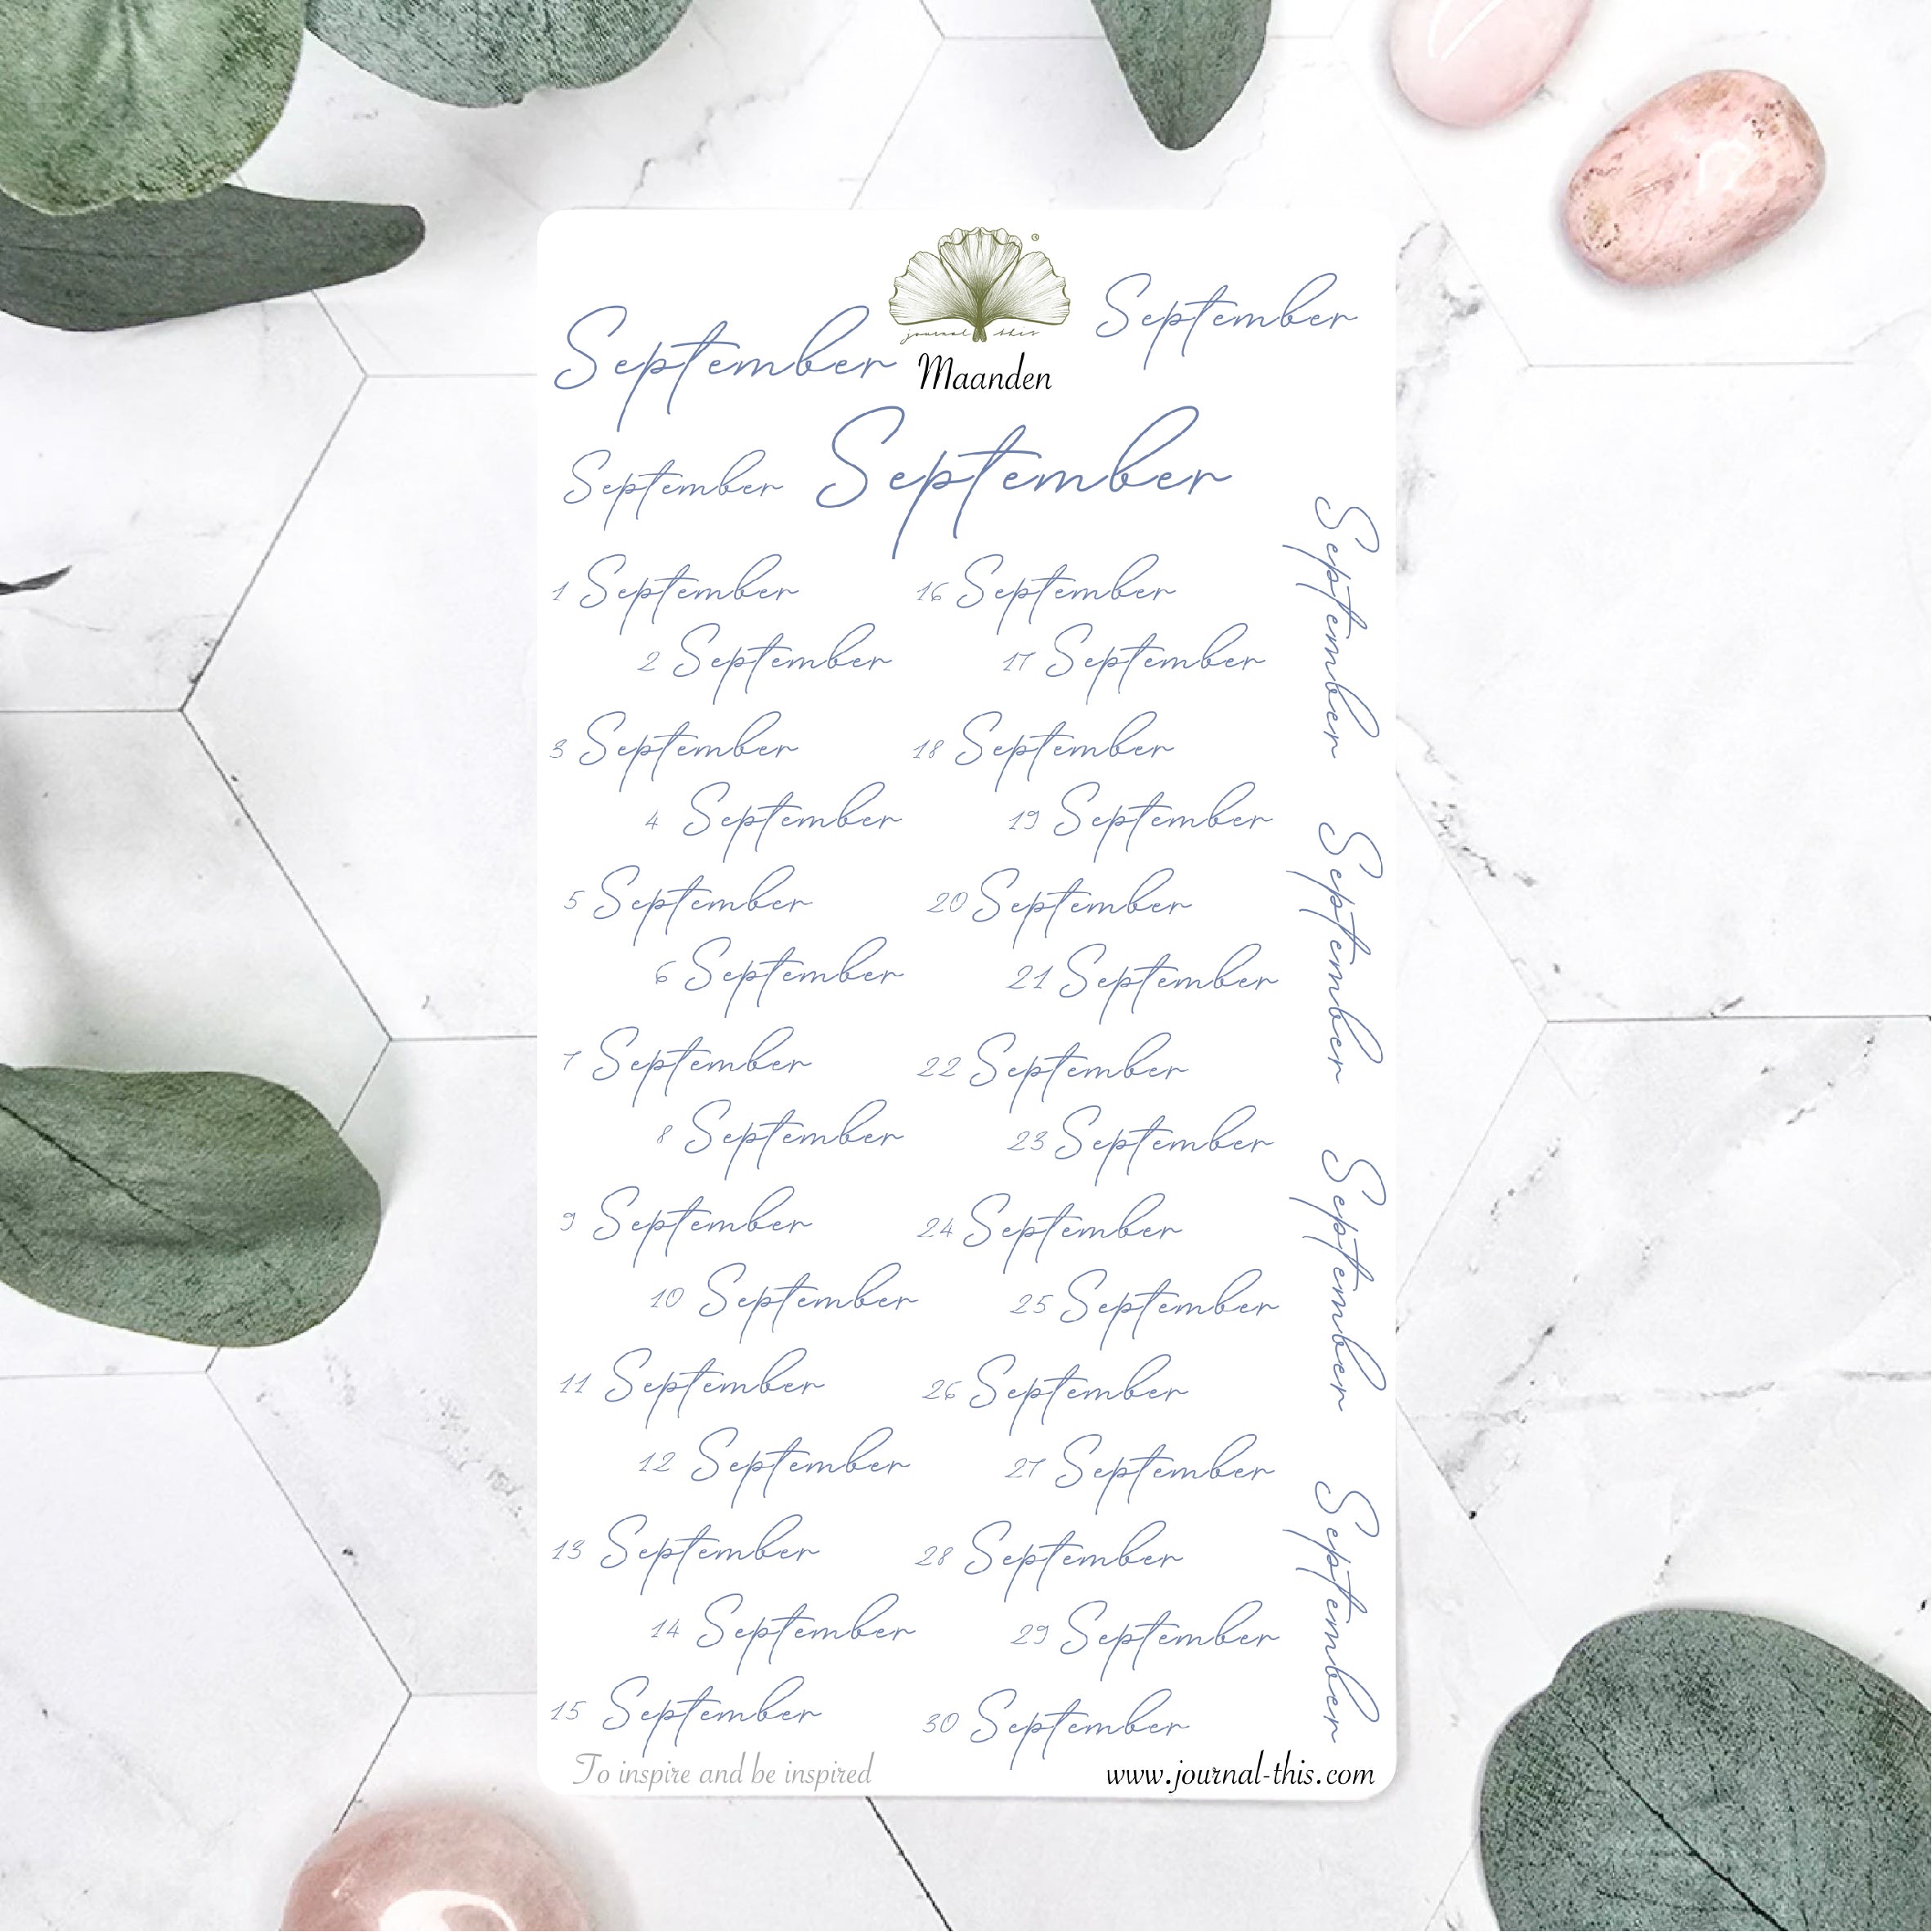 journal this
September
September
Maanden
September
September
1 September
2 September
3 September
4 September
5 September
6 September
7 September
8 September
9 September
10 September
11 September
12 September
13 September
14 September
15 September
16 September
17 September
18 September
19 September
20 September
21 September
22 September
23 September
24 September
25 September
26 September
27 September
28 September
29 September
30 September
September
September
September
September
To inspire and be inspired
www.journal-this.com